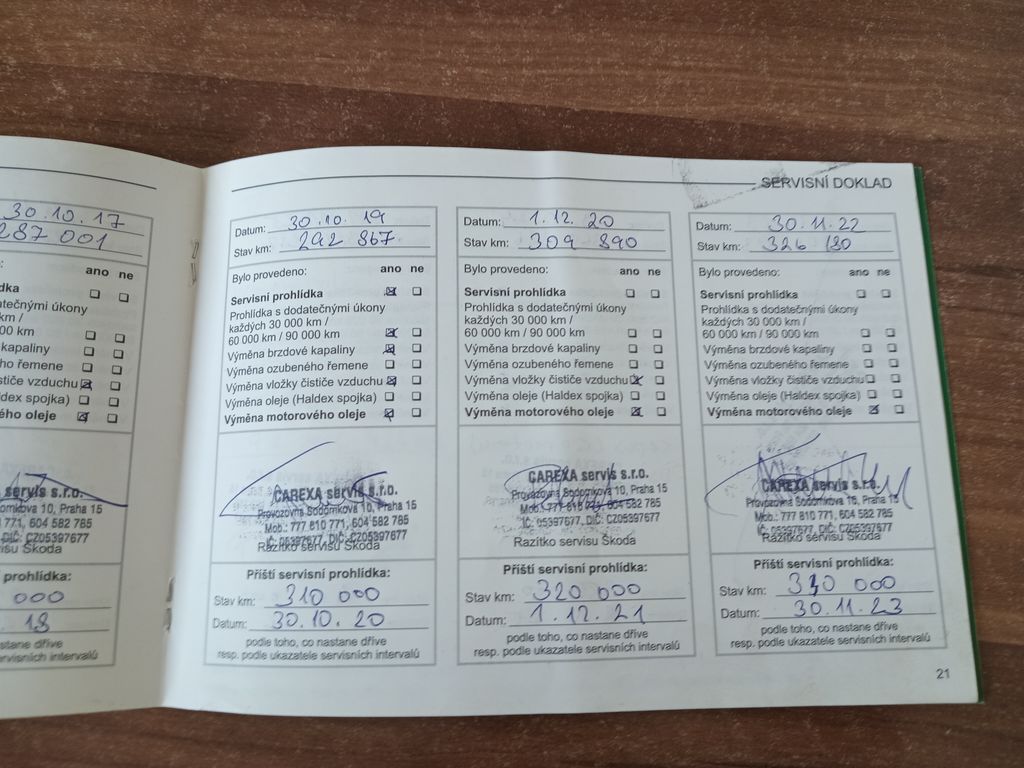 30.10.17
287 001
ano ne
dka
datečnými úkony
km /
000 km
kapaliny
ho řemene
stiče vzduchu
ldex spojka)
ého oleje
servis s.r.o.
10, Praha 15
771, 604 582 785
DIČ: CZ05397677
isu Škoda
prohlídka:
000
18
stane dříve
ervisních intervalů
SERVISNÍ DOKLAD
Datum: 30.10.19
Stav km: 292 867
Bylo provedeno: ano ne
Servisní prohlídka
Prohlídka s dodatečnými úkony
každých 30 000 km /
60 000 km / 90 000 km
Výměna brzdové kapaliny
Výměna ozubeného řemene
Výměna vložky čističe vzduchu
Výměna oleje (Haldex spojka)
Výměna motorového oleje
CAREXA servis s.r.o.
Provozovna Sodomkova 10, Praha 15
Mob.: 777 810 771, 604 582 785
IČ: 05397677, DIČ: CZ05397677
Razítko servisu Škoda
Příští servisní prohlídka:
Stav km: 310 000
Datum: 30.10.20
podle toho, co nastane dříve
resp. podle ukazatele servisních intervalů
Datum: 1.12.20
Stav km: 309 890
Bylo provedeno: ano ne
Servisní prohlídka
Prohlídka s dodatečnými úkony
každých 30 000 km /
60 000 km / 90 000 km
Výměna brzdové kapaliny
Výměna ozubeného řemene
Výměna vložky čističe vzduchu
Výměna oleje (Haldex spojka)
Výměna motorového oleje
CAREXA servis s.r.o.
Provozovna Sodomkova 10, Praha 15
Mob.: 777 810 771, 604 582 785
IČ: 05397677, DIČ: CZ05397677
Razítko servisu Škoda
Příští servisní prohlídka:
Stav km: 320 000
Datum: 1.12.21
podle toho, co nastane dříve
resp. podle ukazatele servisních intervalů
Datum: 30.11.22
Stav km: 326 180
Bylo provedeno: ano ne
Servisní prohlídka
Prohlídka s dodatečnými úkony
každých 30 000 km /
60 000 km / 90 000 km
Výměna brzdové kapaliny
Výměna ozubeného řemene
Výměna vložky čističe vzduchu
Výměna oleje (Haldex spojka)
Výměna motorového oleje
CAREXA servis s.r.o.
Provozovna Sodomkova 10, Praha 15
Mob.: 777 810 771, 604 582 785
IČ: 05397677, DIČ: CZ05397677
Razítko servisu Škoda
Příští servisní prohlídka:
Stav km: 340 000
Datum: 30.11.23
podle toho, co nastane dříve
resp. podle ukazatele servisních intervalů
21